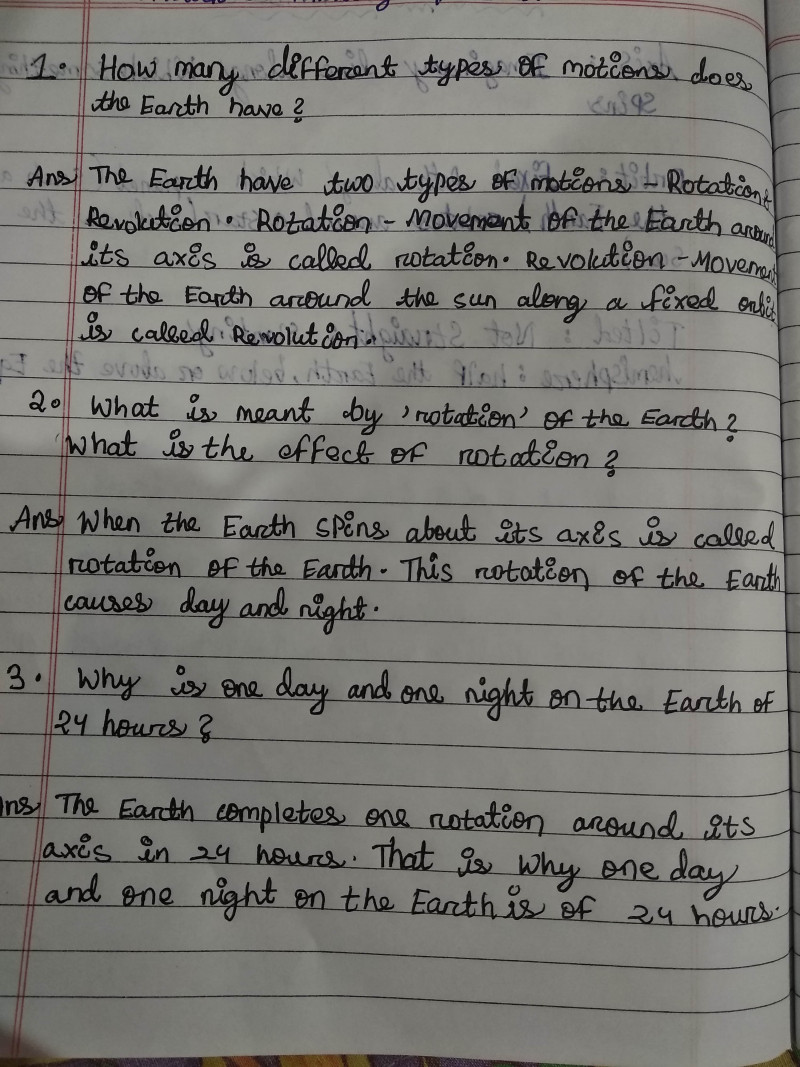 1. How many different types of motions does
the Earth have ?
Ans) The Earth have two types of motions - Rotation &
Revolution. Rotation - Movement of the Earth around
its axis is called rotation. Revolution - Movement
of the Earth around the sun along a fixed orbit
is called Revolution.
2. What is meant by 'rotation' of the Earth ?
What is the effect of rotation ?
Ans) When the Earth spins about its axis is called
rotation of the Earth. This rotation of the Earth
causes day and night.
3. Why is one day and one night on the Earth of
24 hours ?
Ans) The Earth completes one rotation around its
axis in 24 hours. That is why one day
and one night on the Earth is of 24 hours.